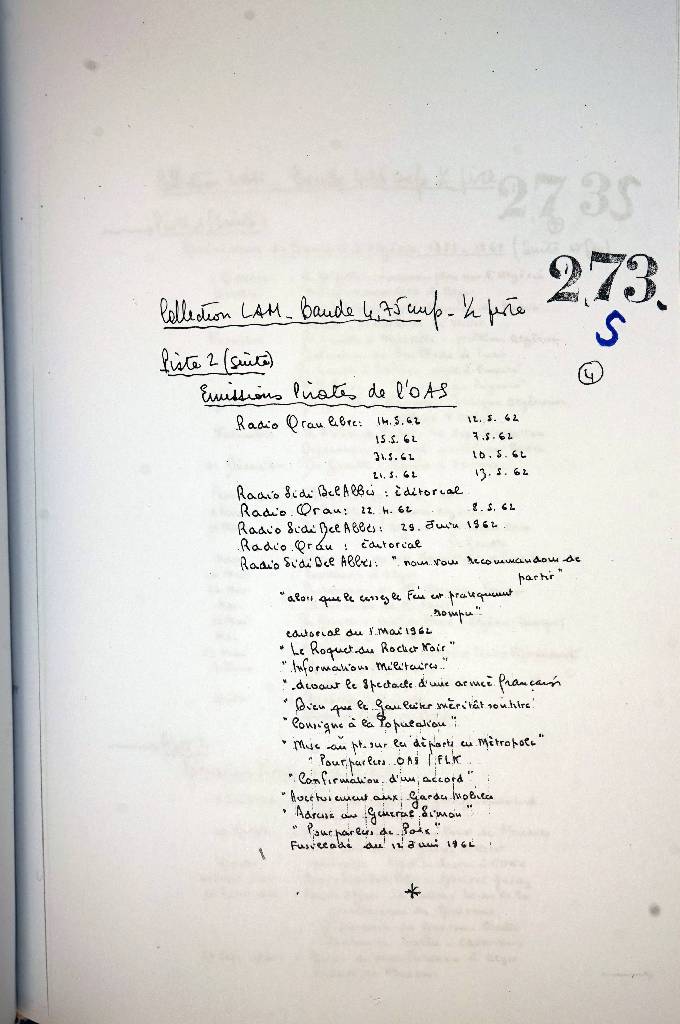 2.73.
S
Collection LAM - Bande 4,75 cm/s - 1/2 piste
4
Piste 2 (Suite)
Emissions Pirates de l'OAS
Radio Oran libre: 14.5.62 12.5.62
15.5.62 7.5.62
31.5.62 10.5.62
21.5.62 13.5.62
Radio Sidi Bel Abbès : éditorial
Radio Oran: 22.4.62 8.5.62
Radio Sidi Bel Abbès: 29 Juin 1962.
Radio Oran : éditorial
Radio Sidi Bel Abbès: "nous vous recommandons de
partir"
"alors que le cessez le Feu est pratiquement
rompu"
éditorial du 1er Mai 1962
"Le Roquet du Rocher Noir"
"Informations Militaires"
"devant le Spectacle d'une armée française
"Bien que le Gauleiter méritât son titre"
"Consigne à la Population"
"Mise au pt. sur les départs en Métropole"
"Pourparlers OAS / FLN
"Confirmation d'un accord"
"Avertissement aux Gardes Mobiles
"Adresse au Général Simon"
"Pourparlers de Paix"
Fusillade du 12 Juin 1962
*